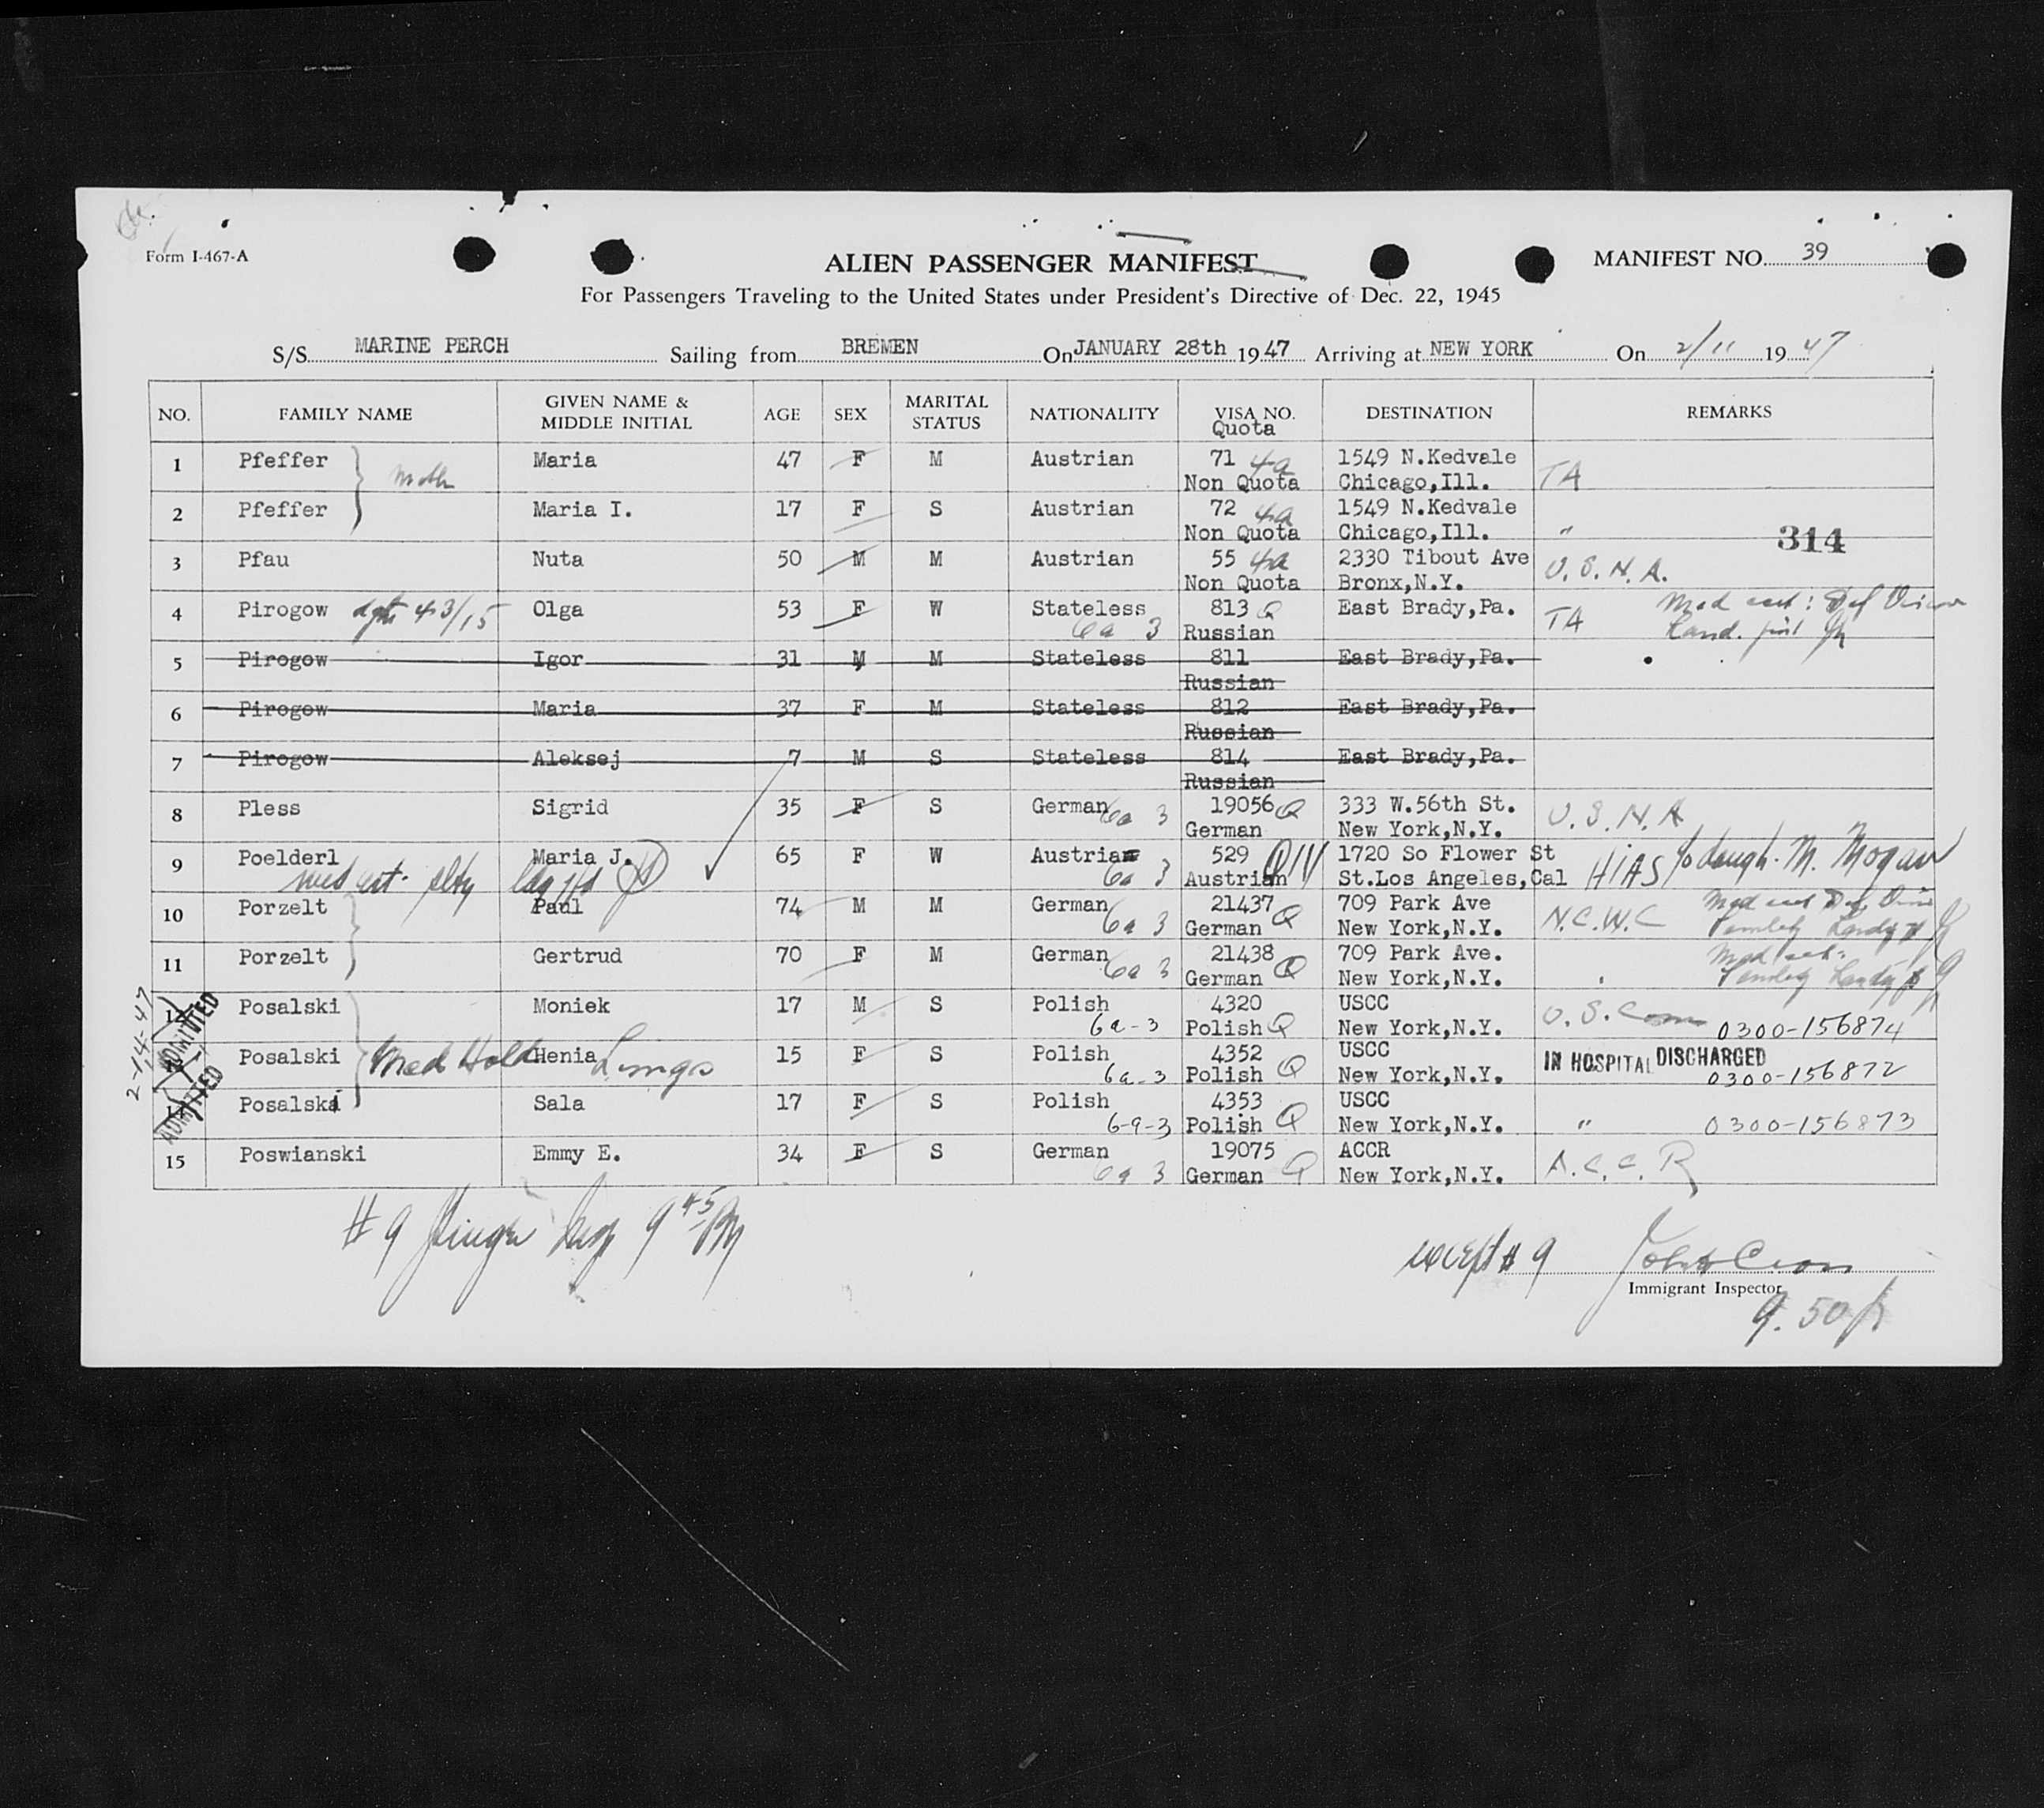 Form I-467-A
ALIEN PASSENGER MANIFEST
MANIFEST NO. 39
For Passengers Traveling to the United States under President's Directive of Dec. 22, 1945
S/S MARINE PERCH Sailing from BREMEN On JANUARY 28th 1947 Arriving at NEW YORK On 2/11 1947
NO. FAMILY NAME GIVEN NAME & MIDDLE INITIAL AGE SEX MARITAL STATUS NATIONALITY VISA NO. Quota DESTINATION REMARKS
1 Pfeffer Maria 47 F M Austrian 71 4a 1549 N.Kedvale
Non Quota Chicago,Ill. TA
2 Pfeffer Maria I. 17 F S Austrian 72 4a 1549 N.Kedvale
Non Quota Chicago,Ill. "
314
3 Pfau Nuta 50 M M Austrian 55 4a 2330 Tibout Ave
Non Quota Bronx,N.Y. U.S.N.A.
4 Pirogow 43/15 Olga 53 F W Stateless 813 Q East Brady,Pa. TA
6a 3 Russian
5 Pirogow Igor 31 M M Stateless 811 East Brady,Pa.
Russian
6 Pirogow Maria 37 F M Stateless 812 East Brady,Pa.
Russian
7 Pirogow Aleksej 7 M S Stateless 814 East Brady,Pa.
Russian
8 Pless Sigrid 35 F S German 19056 Q 333 W.56th St.
6a 3 German New York,N.Y. U.S.N.A
9 Poelderl Maria J. 65 F W Austrian 529 QIV 1720 So Flower St
6a 3 Austrian St.Los Angeles,Cal HIAS M. Mogan
10 Porzelt Paul 74 M M German 21437 Q 709 Park Ave
6a 3 German New York,N.Y. N.C.W.C
11 Porzelt Gertrud 70 F M German 21438 Q 709 Park Ave.
6a 3 German New York,N.Y.
2-14-47
ADMITTED
12 Posalski Moniek 17 M S Polish 4320 USCC
6a-3 Polish Q New York,N.Y. U.S.Com 0300-156874
Posalski Med Hold Henia Lungs 15 F S Polish 4352 USCC IN HOSPITAL DISCHARGED
6a-3 Polish Q New York,N.Y. 0300-156872
ADMITTED
14 Posalski Sala 17 F S Polish 4353 USCC
6-9-3 Polish Q New York,N.Y. " 0300-156873
15 Poswianski Emmy E. 34 F S German 19075 ACCR
6a 3 German Q New York,N.Y. A.C.C.R
#9 9 45 PM
except #9
Immigrant Inspector
9.50